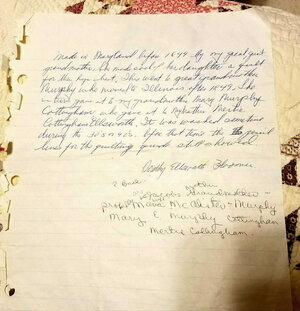 Made in Maryland before 1849 By my great great
grandmother who made each of her daughters a quilt
for their hope chest. This went to great grandmother
Murphy who moved to Illinois after 1849. She
in turn gave it to my grandmother Mary Murphy
Cottingham who gave it to my Mother Mertie
Cottingham Ellsworth. It was washed sometime
during the 30's or 40's. Before that time the pencil
lines for the quilting guide still showed.
Dorothy Ellsworth
mother
Grandmother
Maria McAlister - Murphy
Mary E Murphy Cottingham
Mertie Cottingham